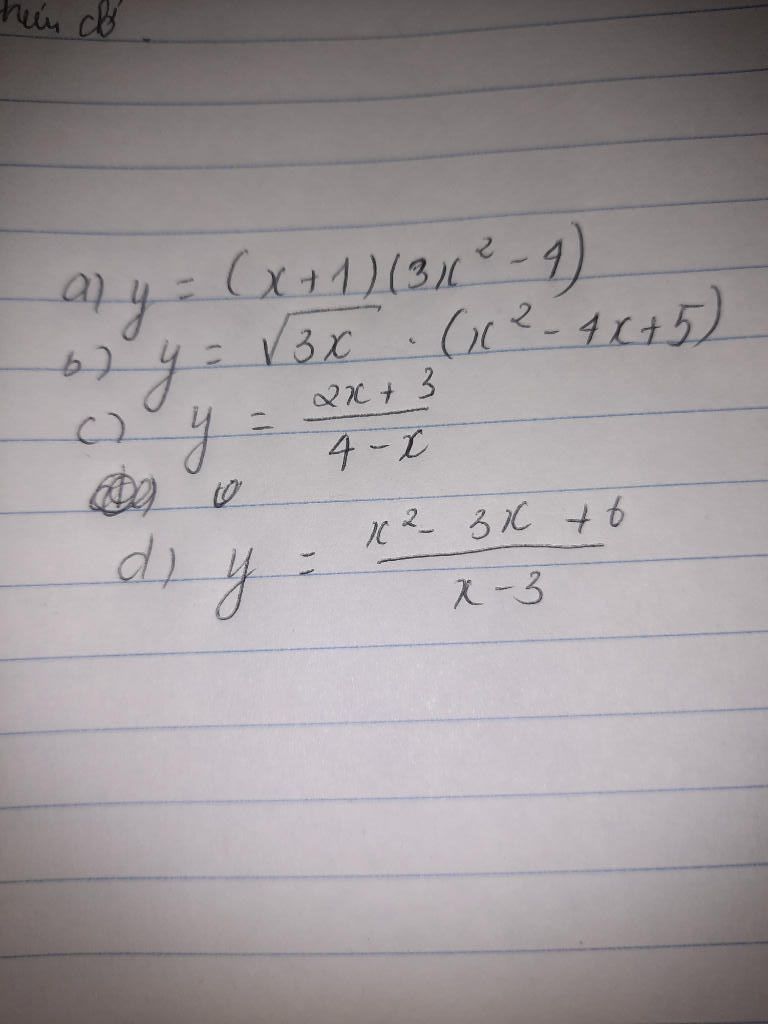 a) y = (x+1)(3x² - 4)
b) y = √3x . (x² - 4x + 5)
c) y = (2x + 3)/(4 - x)
d) y = (x² - 3x + 6)/(x - 3)